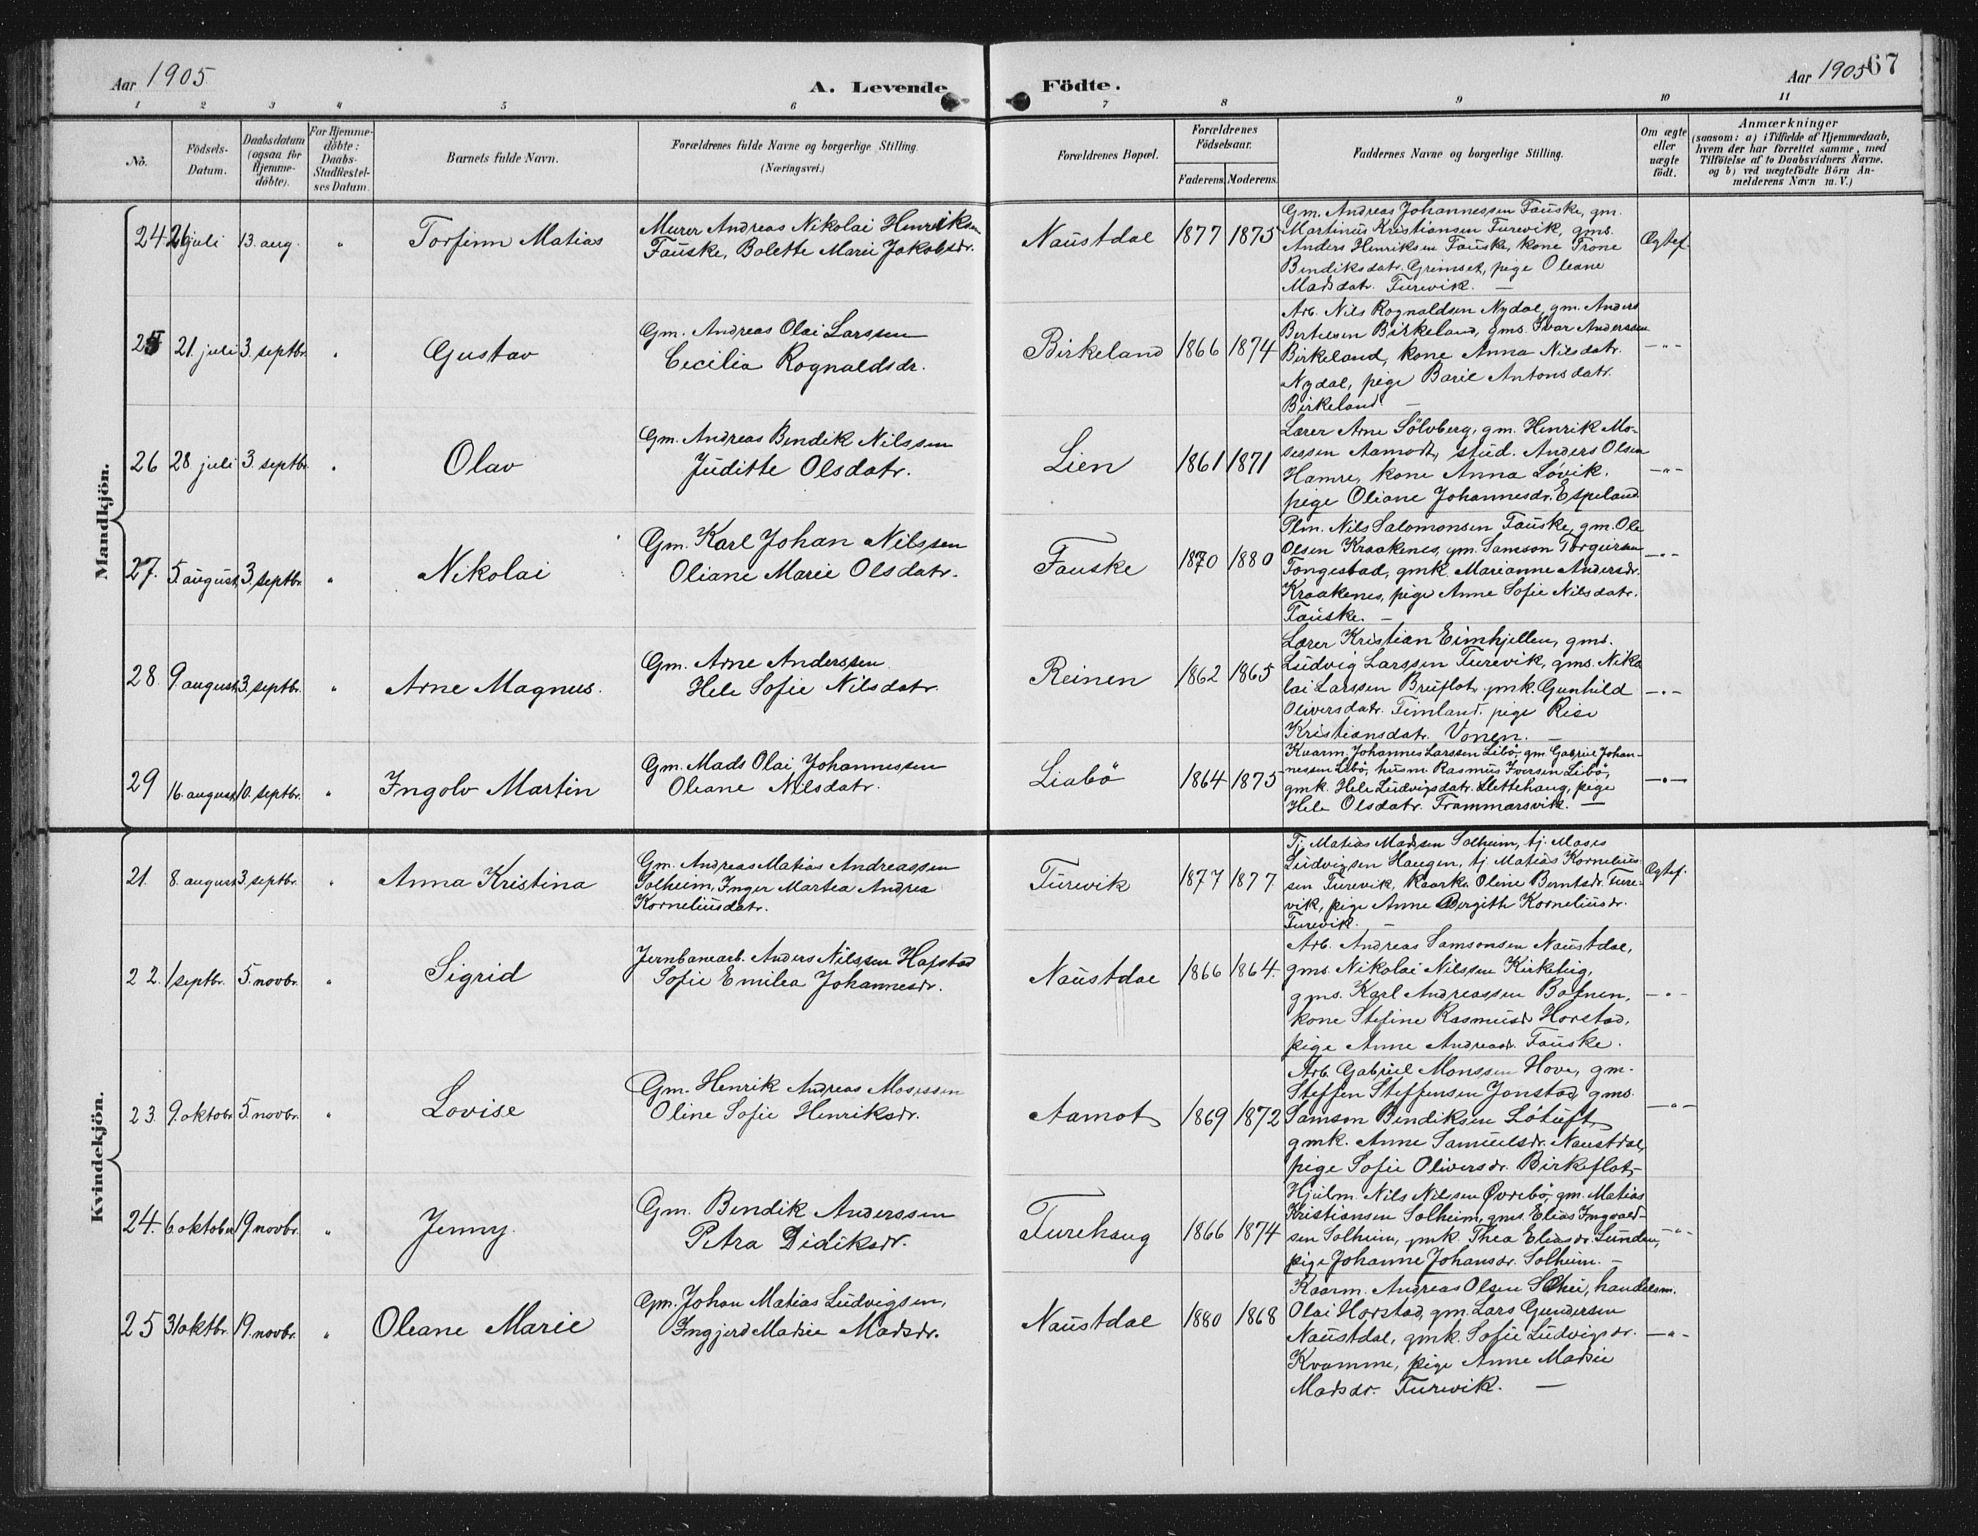 Aar 1905
A. Levende
Födte.
Aar 1905
67
1 2 3 4 5 6 7 8 9 10 11
No.
Födsels-
Datum.
Daabsdatum
(ogsaa for
Hjemme-
döbte).
For Hjemme-
döbte:
Daabs-
Stadfestel-
ses Datum.
Barnets fulde Navn.
Forældrenes fulde Navne og borgerlige Stilling.
(Næringsvei.)
Forældrenes Bopæl.
Forældrenes
Födselsaar.
Faderens. Moderens.
Faddernes Navne og borgerlige Stilling.
Om ægte
eller
uægte
födt.
Anmærkninger
(saasom: a) i Tilfælde af Hjemmedaab,
hvem der har forrettet samme, med
Tilföielse af to Daabsvidners Navne.
og b) ved uægtefödte Börn An-
melderens Navn m. V.)
Mandkjön.
24 26 juli 13. aug. " Torfinn Matias
Murer Andreas Nikolai Henriksen
Fauske, Bolette Marie Jakobsdr.
Naustdal 1877 1875
Gm. Andreas Johannessen Fauske, gm.
Martinus Kristiansen Furevik, gms.
Anders Henriksen Fauske, kone Trone
Bendiksdatr. Grimset, pige Oleane
Madsdatr. Furevik. —
Ægtef.
25 21. juli 3. septbr. " Gustav
Gm. Andreas Olai Larssen
Cecilia Rognaldsdr.
Birkeland 1866 1874
Arb. Nils Rognaldsen Nydal, gm. Anders
Bertelsen Birkeland, gms. Ivar Anderssen
Birkeland, kone Anna Nilsdatr.
Nydal, pige Barie Antonsdatr.
Birkeland. —
—"—
26 28 juli 3. septbr. " Olav
Gm. Andreas Bendik Nilssen
Juditte Olsdatr.
Lien 1861 1871
Lærer Arne Sölvberg, gm. Henrik Mo-
sessen Aamot, stud. Anders Olsen
Hamre, kone Anna Lövik.
pige Oliane Johannesdr. Espeland
—"—
27. 5 august 3. septbr. " Nikolai
Gm. Karl Johan Nilssen
Oliane Marie Olsdatr.
Fauske 1870 1880
Plm. Nils Salomonsen Fauske, gm. Ole
Olsen Kraakenes, ym. Samson Torgeirsen
Tongestad, gmk. Marianne Andersdr.
Kraakenes, pige Anne Sofie Nilsdatr.
Fauske. —
—"—
28. 9 august 3. septbr. " Arne Magnus.
Gm. Arne Anderssen
Hele Sofie Nilsdatr.
Reinen 1862 1865
Lærer Kristian Eimhjellen, gms.
Ludvig Larssen Furevik, gms. Niko
lai Larssen Bruflot, gmk. Gunhild
Oliversdatr. Timland. pige Rise
Kristiansdatr. Vonen. —
—"—
29 16. august 10. septbr. " Ingolv Martin
Gm. Mads Olai Johannessen
Oleane Nilsdatr.
Liabö 1864 1875
Kaarm. Johannes Larssen Libö, gm Gabriel Johan-
nessen Libö, husm. Rasmus Iversen Libö,
gmk. Hele Ludvigsdatr. Slettehaug, pige
Hele Olsdatr. Frammarsvik. —
—"—
Kvindekjön.
21. 8. august 3. septbr. " Anna Kristina
Gm. Andreas Matias Andreassen
Solheim, Inger Martea Andrea
Korneliusdatr.
Furevik 1877 1877.
Tj. Matias Madssen Solheim, tj. Moses
Ludvigsen Haugen, tj Matias Kornelius-
sen Furevik, Kaark. Oline Berntsdr. Fure-
vik, pige Anne Bergitte Korneliusdr.
Furevik. —
Ægtef.
22. 1 septbr. 5. novbr. " Sigrid
Jernbanearb. Anders Nilssen Hafstad
Sofie Emilea Johannesdr.
Naustdal 1866 1864.
Arb. Andreas Samsonsen Naustdal,
gms. Nikolai Nilssen Kirketeig,
gms. Karl Andreassen Botnen,
kone Stefine Rasmusdr Horstad,
pige Anne Andreasdr. Fauske.
—"—
23. 9. oktobr 5. novbr. " Lovise
Gm. Henrik Andreas Mosessen
Oline Sofie Henriksdr.
Aamot 1869 1872
Arb. Gabriel Monssen Hove, gm.
Steffen Steffensen Jonstad, gms.
Samson Bendiksen Lötuft,
gmk. Anne Samuelsdr. Naustdal,
pige Sofie Oliversdr. Birkeflot.
—"—
24. 6 oktober 19. novbr. " Jenny.
Gm. Bendik Anderssen
Petra Didiksdr.
Furehaug 1866 1874
Hjulm. Nils Nilssen Övrebö, gm. Matias
Kristiansen Solheim, gms. Elias Ingvald-
sen Solheim, gmk. Thea Eliasdr. Lunden,
pige Johanne Johansdr. Solheim. —
—"—
25 31 oktbr. 19. novbr. " Oleane Marie
Gm. Johan Matias Ludvigsen,
Ingjerd Marie Madsdr.
Naustdal 1880 1868
Kaarm. Andreas Olsen Schei, handelsm.
Olai Horstad, gm. Lars Gundersen
Naustdal, gmk. Sofie Ludvigsdr.
Kvamme, pige Anne Marie
Madsdr. Furevik. —
—"—